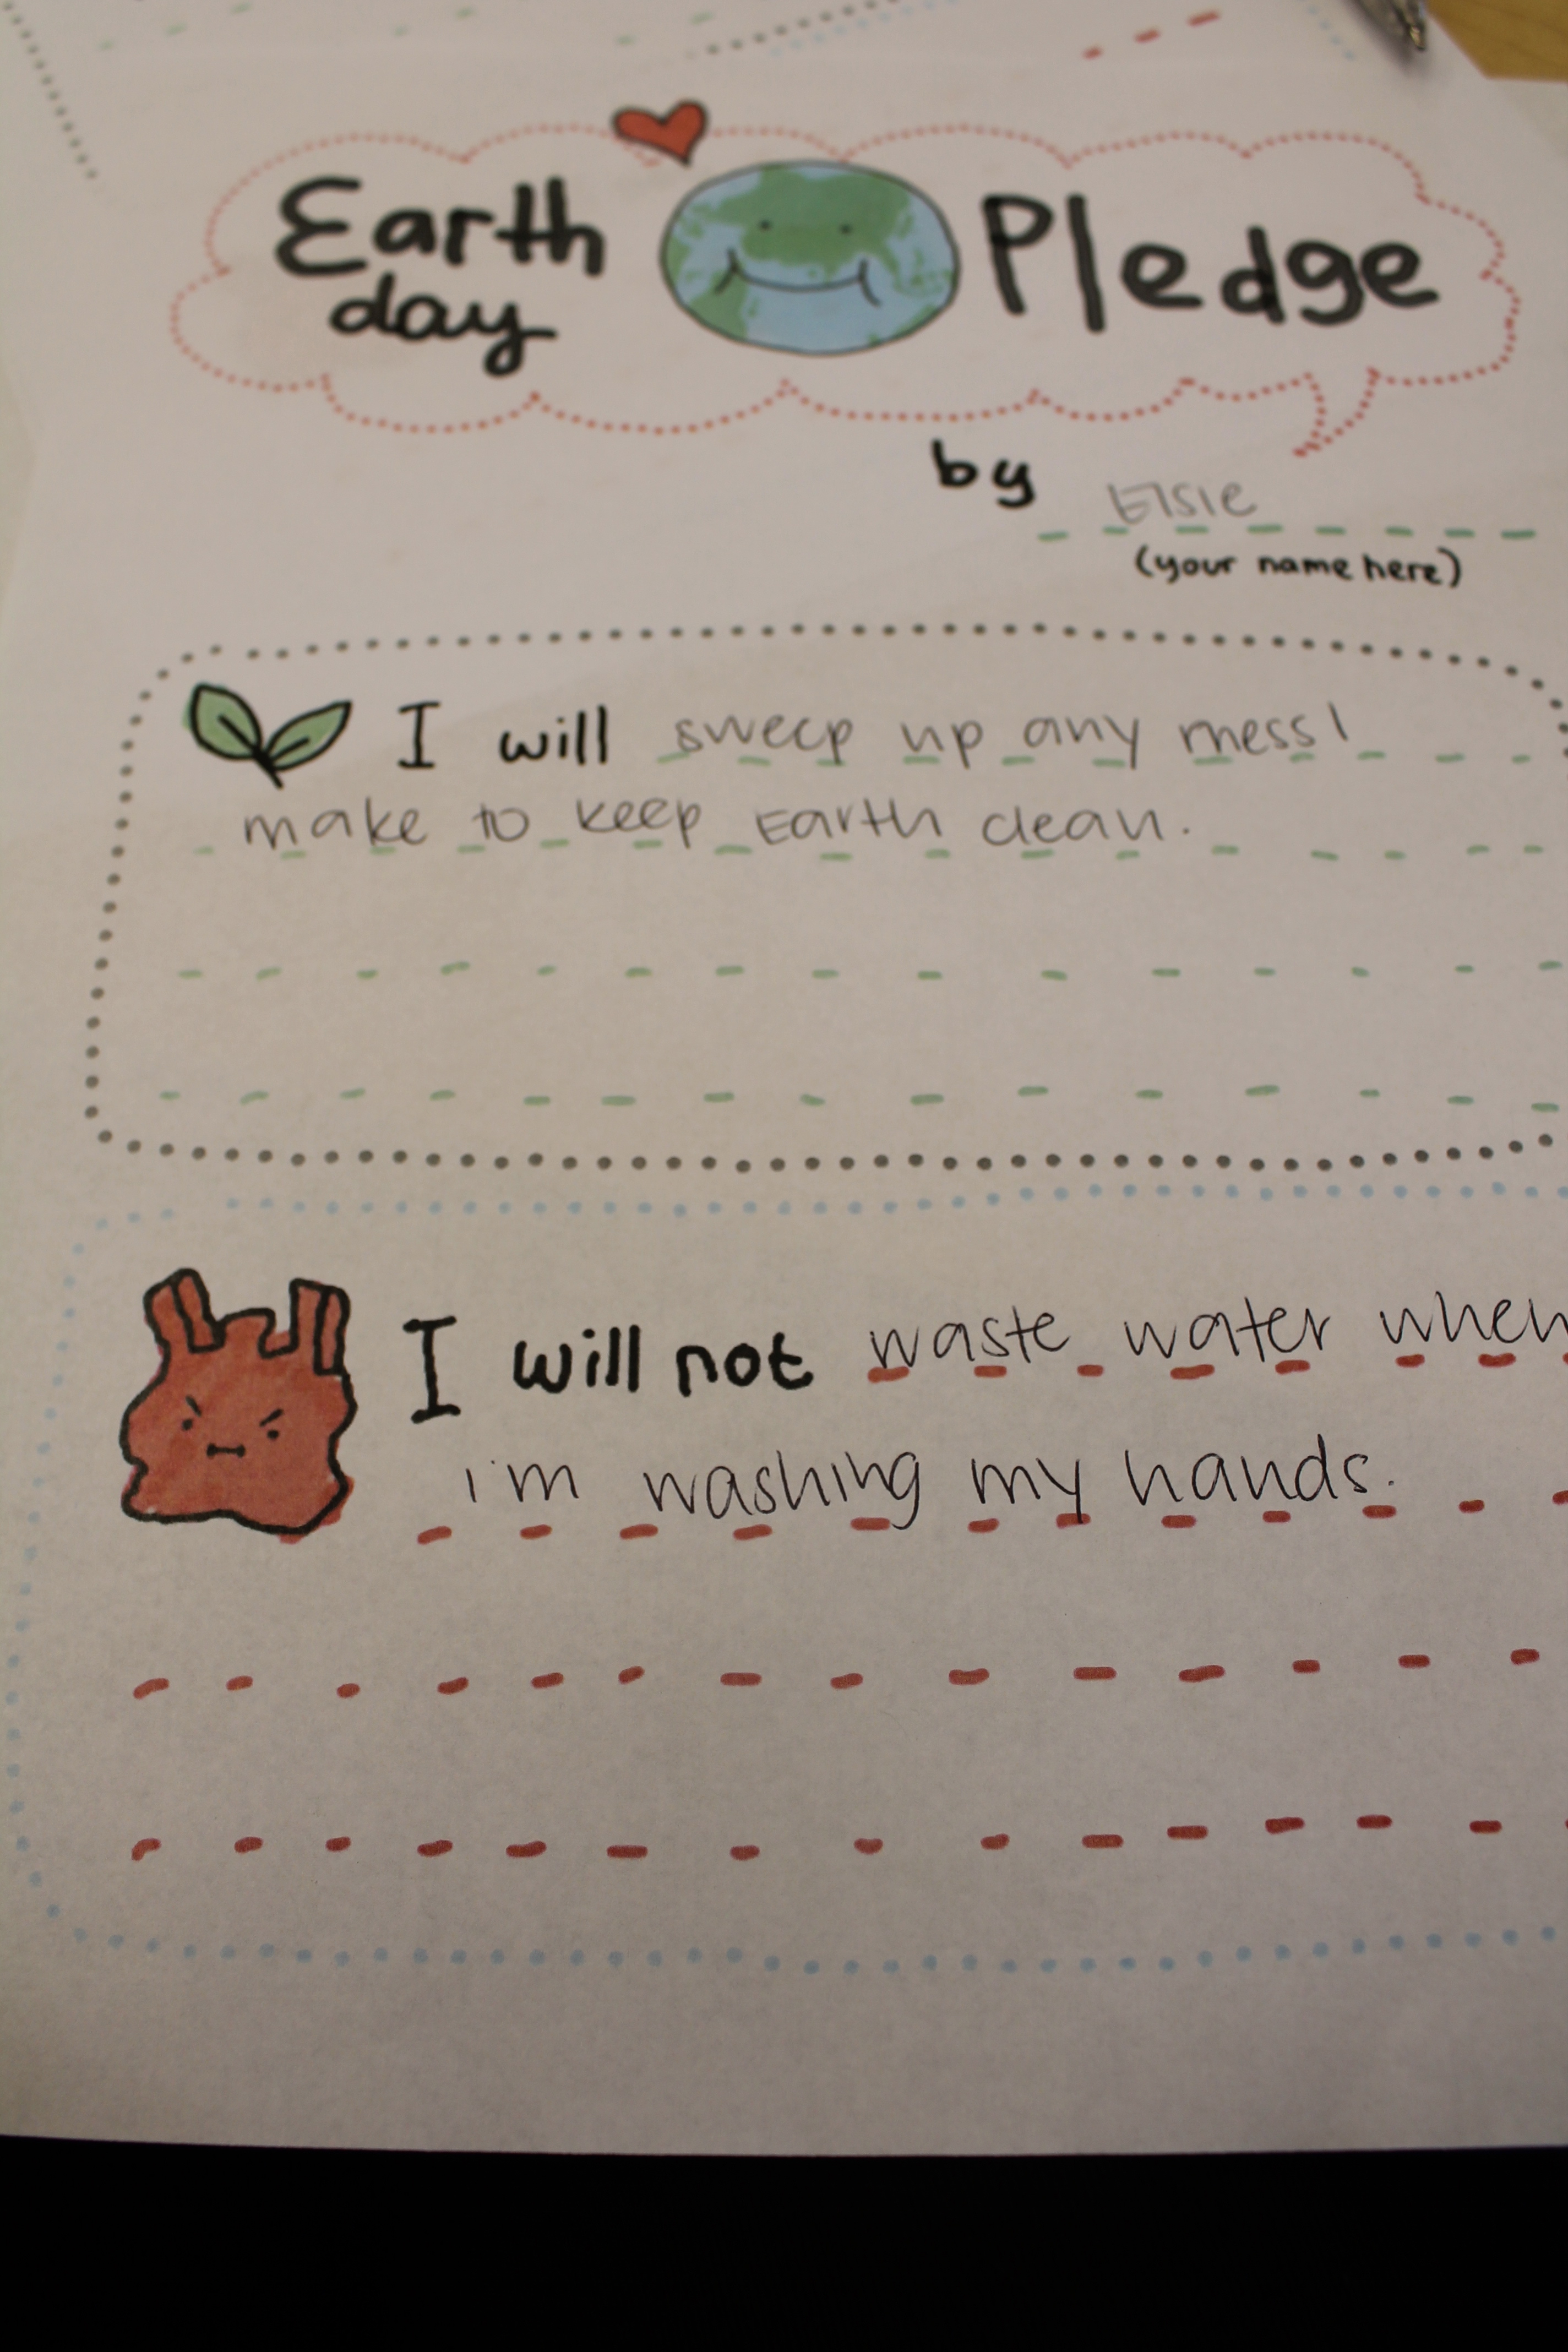 Earth Pledge
day
by Elsie
(your name here)
I will sweep up any mess I
make to keep Earth clean.
I will not waste water when
i'm washing my hands.